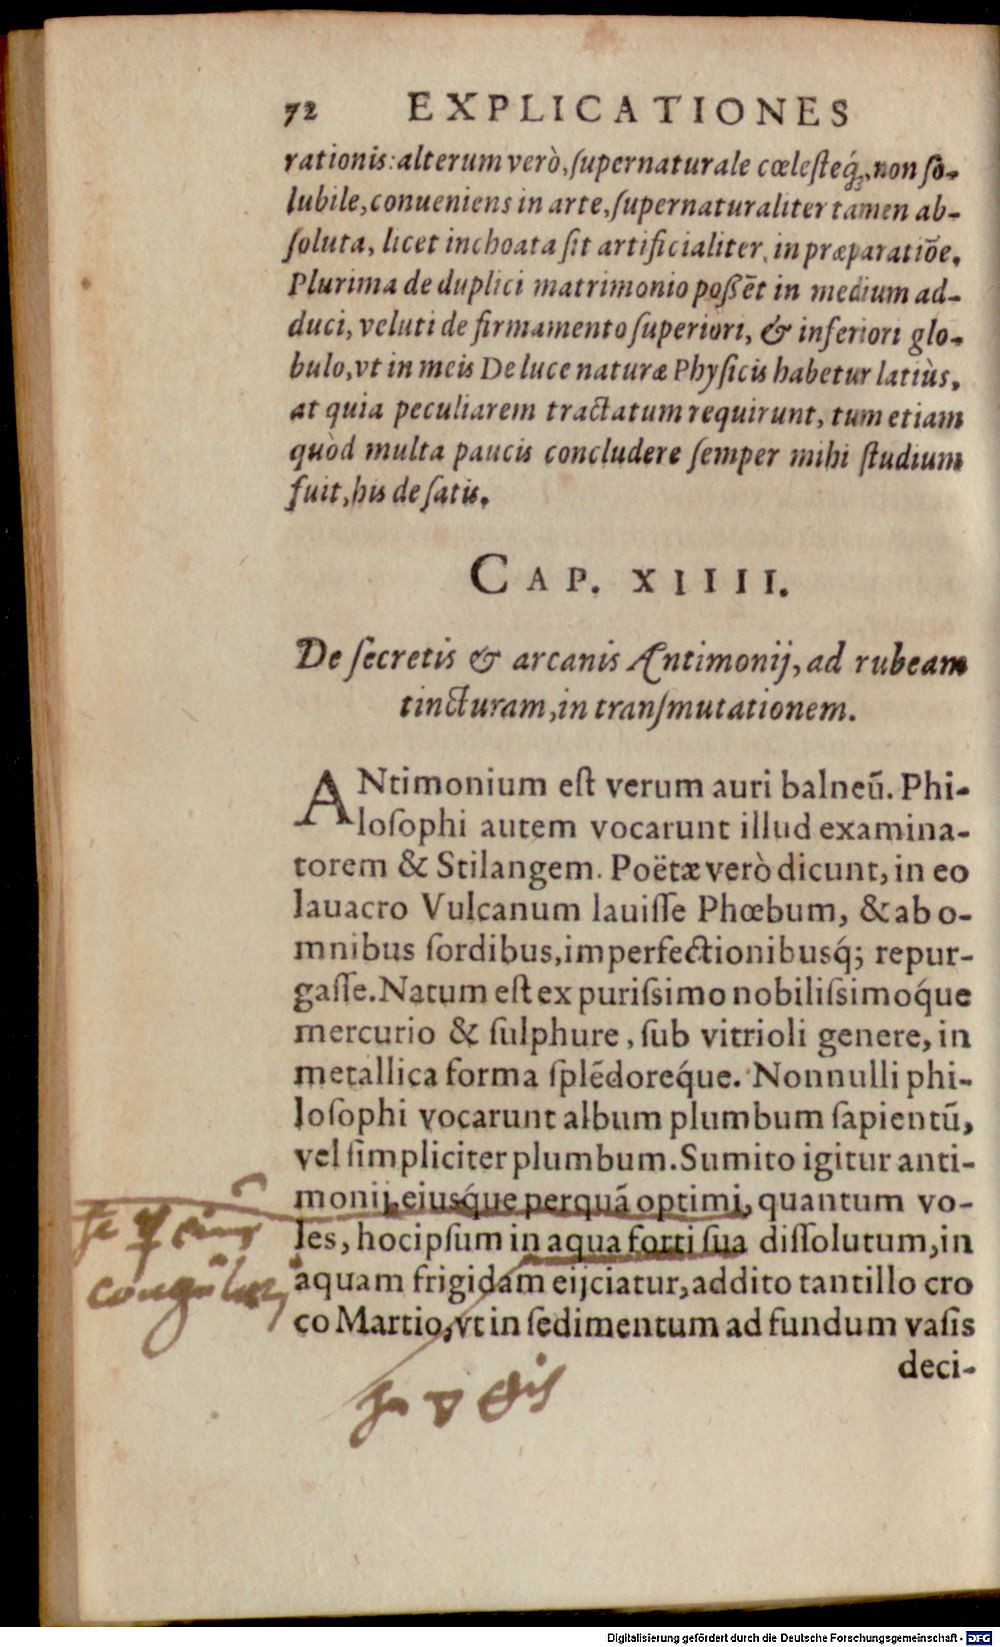 72 EXPLICATIONES
rationis: alterum verò, ſupernaturale cœleſteq́;, non ſo-
lubile, conueniens in arte, ſupernaturaliter tamen ab-
ſoluta, licet inchoata ſit artificialiter, in præparatiōe.
Plurima de duplici matrimonio poßēt in medium ad-
duci, veluti de firmamento ſuperiori, & inferiori glo-
bulo, vt in meis De luce naturæ Phyſicis habetur latiùs,
at quia peculiarem tractatum requirunt, tum etiam
quòd multa paucis concludere ſemper mihi ſtudium
fuit, his de ſatis.
CAP. XIIII.
De ſecretis & arcanis Antimonij, ad rubeam
tincturam, in tranſmutationem.
ANtimonium eſt verum auri balneū. Phi-
loſophi autem vocarunt illud examina-
torem & Stilangem. Poëtæ verò dicunt, in eo
lauacro Vulcanum lauiſſe Phœbum, & ab o-
mnibus ſordibus, imperfectionibusq́; repur-
gaſſe. Natum eſt ex puriſsimo nobiliſsimoq́ue
mercurio & ſulphure, ſub vitrioli genere, in
metallica forma ſplēdoreq́ue. Nonnulli phi-
loſophi vocarunt album plumbum ſapientū,
vel ſimpliciter plumbum. Sumito igitur anti-
monij, eiusq́ue perquā optimi, quantum vo-
les, hoc ipſum in aqua forti ſua diſſolutum, in
aquam frigidam eijciatur, addito tantillo cro
co Martio, vt in ſedimentum ad fundum vaſis
deci-
Digitalisierung gefördert durch die Deutsche Forschungsgemeinschaft - DFG